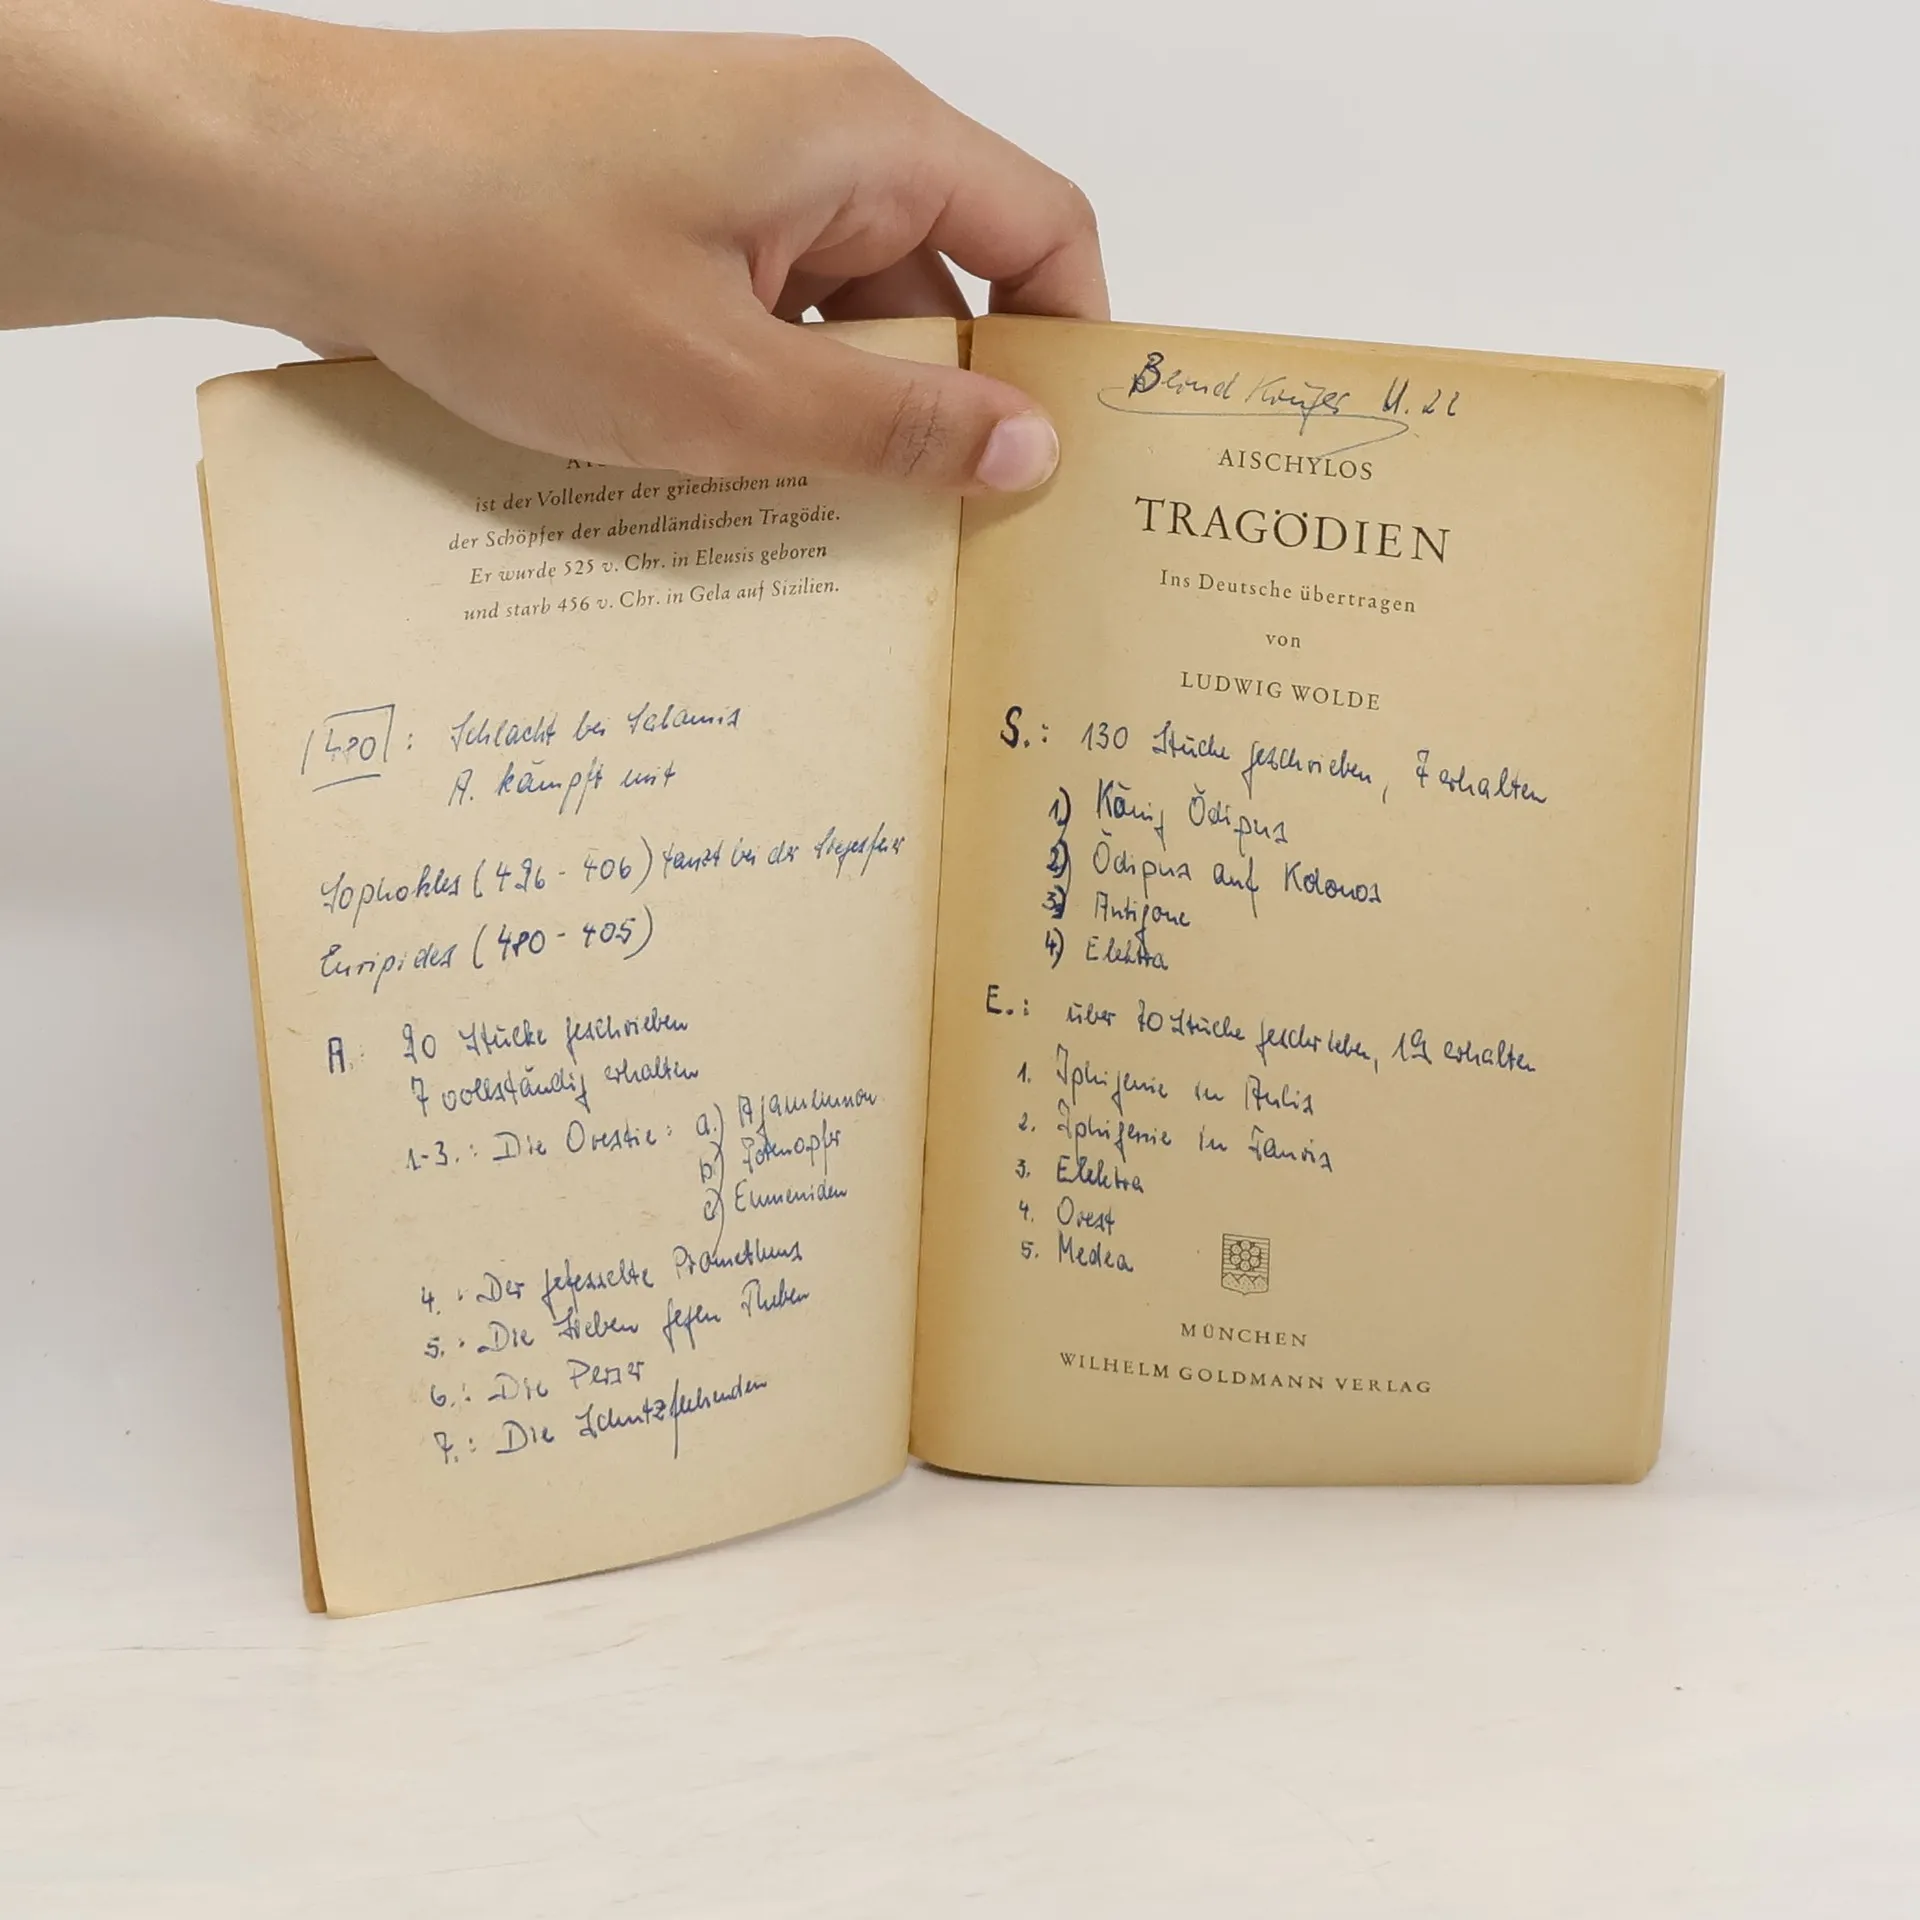 ist der Vollender der griechischen und
der Schöpfer der abendländischen Tragödie.
Er wurde 525 v. Chr. in Eleusis geboren
und starb 456 v. Chr. in Gela auf Sizilien.
480: Schlacht bei Salamis
A. kämpft mit
Sophokles (496-406) tanzt bei der Siegesfeier
Euripides (480-405)
A: 90 Stücke geschrieben
7 vollständig erhalten
1-3.: Die Orestie: a.) Agamemnon
b) Totenopfer
c) Eumeniden
4.: Der gefesselte Prometheus
5.: Die Sieben gegen Theben
6.: Die Perser
7.: Die Schutzflehenden
Bernd Krüger
AISCHYLOS
TRAGÖDIEN
Ins Deutsche übertragen
von
LUDWIG WOLDE
S.: 130 Stücke geschrieben, 7 erhalten
1) König Ödipus
2) Ödipus auf Kolonos
3) Antigone
4) Elektra
E.: über 70 Stücke geschrieben, 19 erhalten
1. Iphigenie in Aulis
2. Iphigenie in Tauris
3. Elektra
4. Orest
5. Medea
MÜNCHEN
WILHELM GOLDMANN VERLAG